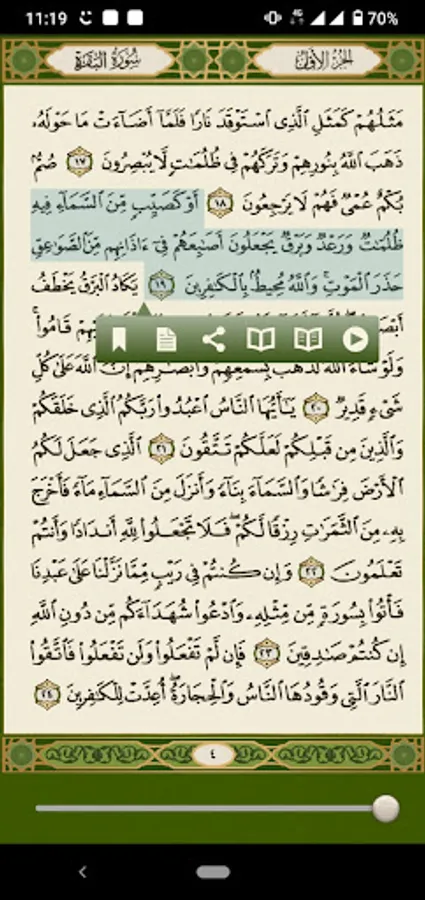 11:19
4G
70%
الجزء الأول
سورة البقرة
مَثَلُهُمْ كَمَثَلِ ٱلَّذِى ٱسْتَوْقَدَ نَارًا فَلَمَّآ أَضَآءَتْ مَا حَوْلَهُۥ
ذَهَبَ ٱللَّهُ بِنُورِهِمْ وَتَرَكَهُمْ فِى ظُلُمَٰتٍ لَّا يُبْصِرُونَ ١٧ صُمٌّۢ
بُكْمٌ عُمْىٌ فَهُمْ لَا يَرْجِعُونَ ١٨ أَوْ كَصَيِّبٍ مِّنَ ٱلسَّمَآءِ فِيهِ
ظُلُمَٰتٌ وَرَعْدٌ وَبَرْقٌ يَجْعَلُونَ أَصَٰبِعَهُمْ فِىٓ ءَاذَانِهِم مِّنَ ٱلصَّوَٰعِقِ
حَذَرَ ٱلْمَوْتِ ۚ وَٱللَّهُ مُحِيطٌۢ بِٱلْكَٰفِرِينَ ١٩ يَكَادُ ٱلْبَرْقُ يَخْطَفُ
قَامُوا۟ ۚ
وَلَوْ شَآءَ ٱللَّهُ لَذَهَبَ بِسَمْعِهِمْ وَأَبْصَٰرِهِمْ إِنَّ ٱللَّهَ عَلَىٰ كُلِّ
شَىْءٍ قَدِيرٌ ٢٠ يَٰٓأَيُّهَا ٱلنَّاسُ ٱعْبُدُوا۟ رَبَّكُمُ ٱلَّذِى خَلَقَكُمْ
وَٱلَّذِينَ مِن قَبْلِكُمْ لَعَلَّكُمْ تَتَّقُونَ ٢١ ٱلَّذِى جَعَلَ لَكُمُ
ٱلْأَرْضَ فِرَٰشًا وَٱلسَّمَآءَ بِنَآءً وَأَنزَلَ مِنَ ٱلسَّمَآءِ مَآءً فَأَخْرَجَ
بِهِۦ مِنَ ٱلثَّمَرَٰتِ رِزْقًا لَّكُمْ ۖ فَلَا تَجْعَلُوا۟ لِلَّهِ أَندَادًا وَأَنتُمْ
تَعْلَمُونَ ٢٢ وَإِن كُنتُمْ فِى رَيْبٍ مِّمَّا نَزَّلْنَا عَلَىٰ عَبْدِنَا
فَأْتُوا۟ بِسُورَةٍ مِّن مِّثْلِهِۦ وَٱدْعُوا۟ شُهَدَآءَكُم مِّن دُونِ ٱللَّهِ
إِن كُنتُمْ صَٰدِقِينَ ٢٣ فَإِن لَّمْ تَفْعَلُوا۟ وَلَن تَفْعَلُوا۟ فَٱتَّقُوا۟
ٱلنَّارَ ٱلَّتِى وَقُودُهَا ٱلنَّاسُ وَٱلْحِجَارَةُ ۖ أُعِدَّتْ لِلْكَٰفِرِينَ ٢٤
٤